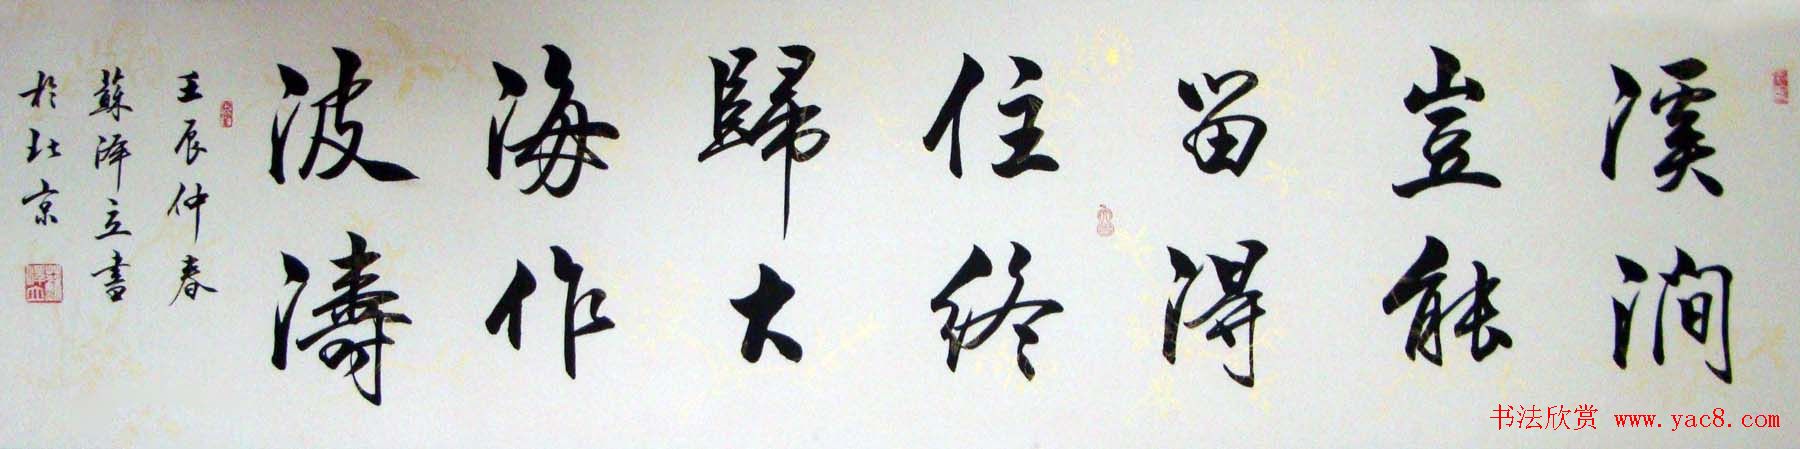 溪澗
豈能
留得
住終
歸大
海作
波濤
壬辰仲春
蘇澤立書
於北京
书法欣赏 www.yac8.com